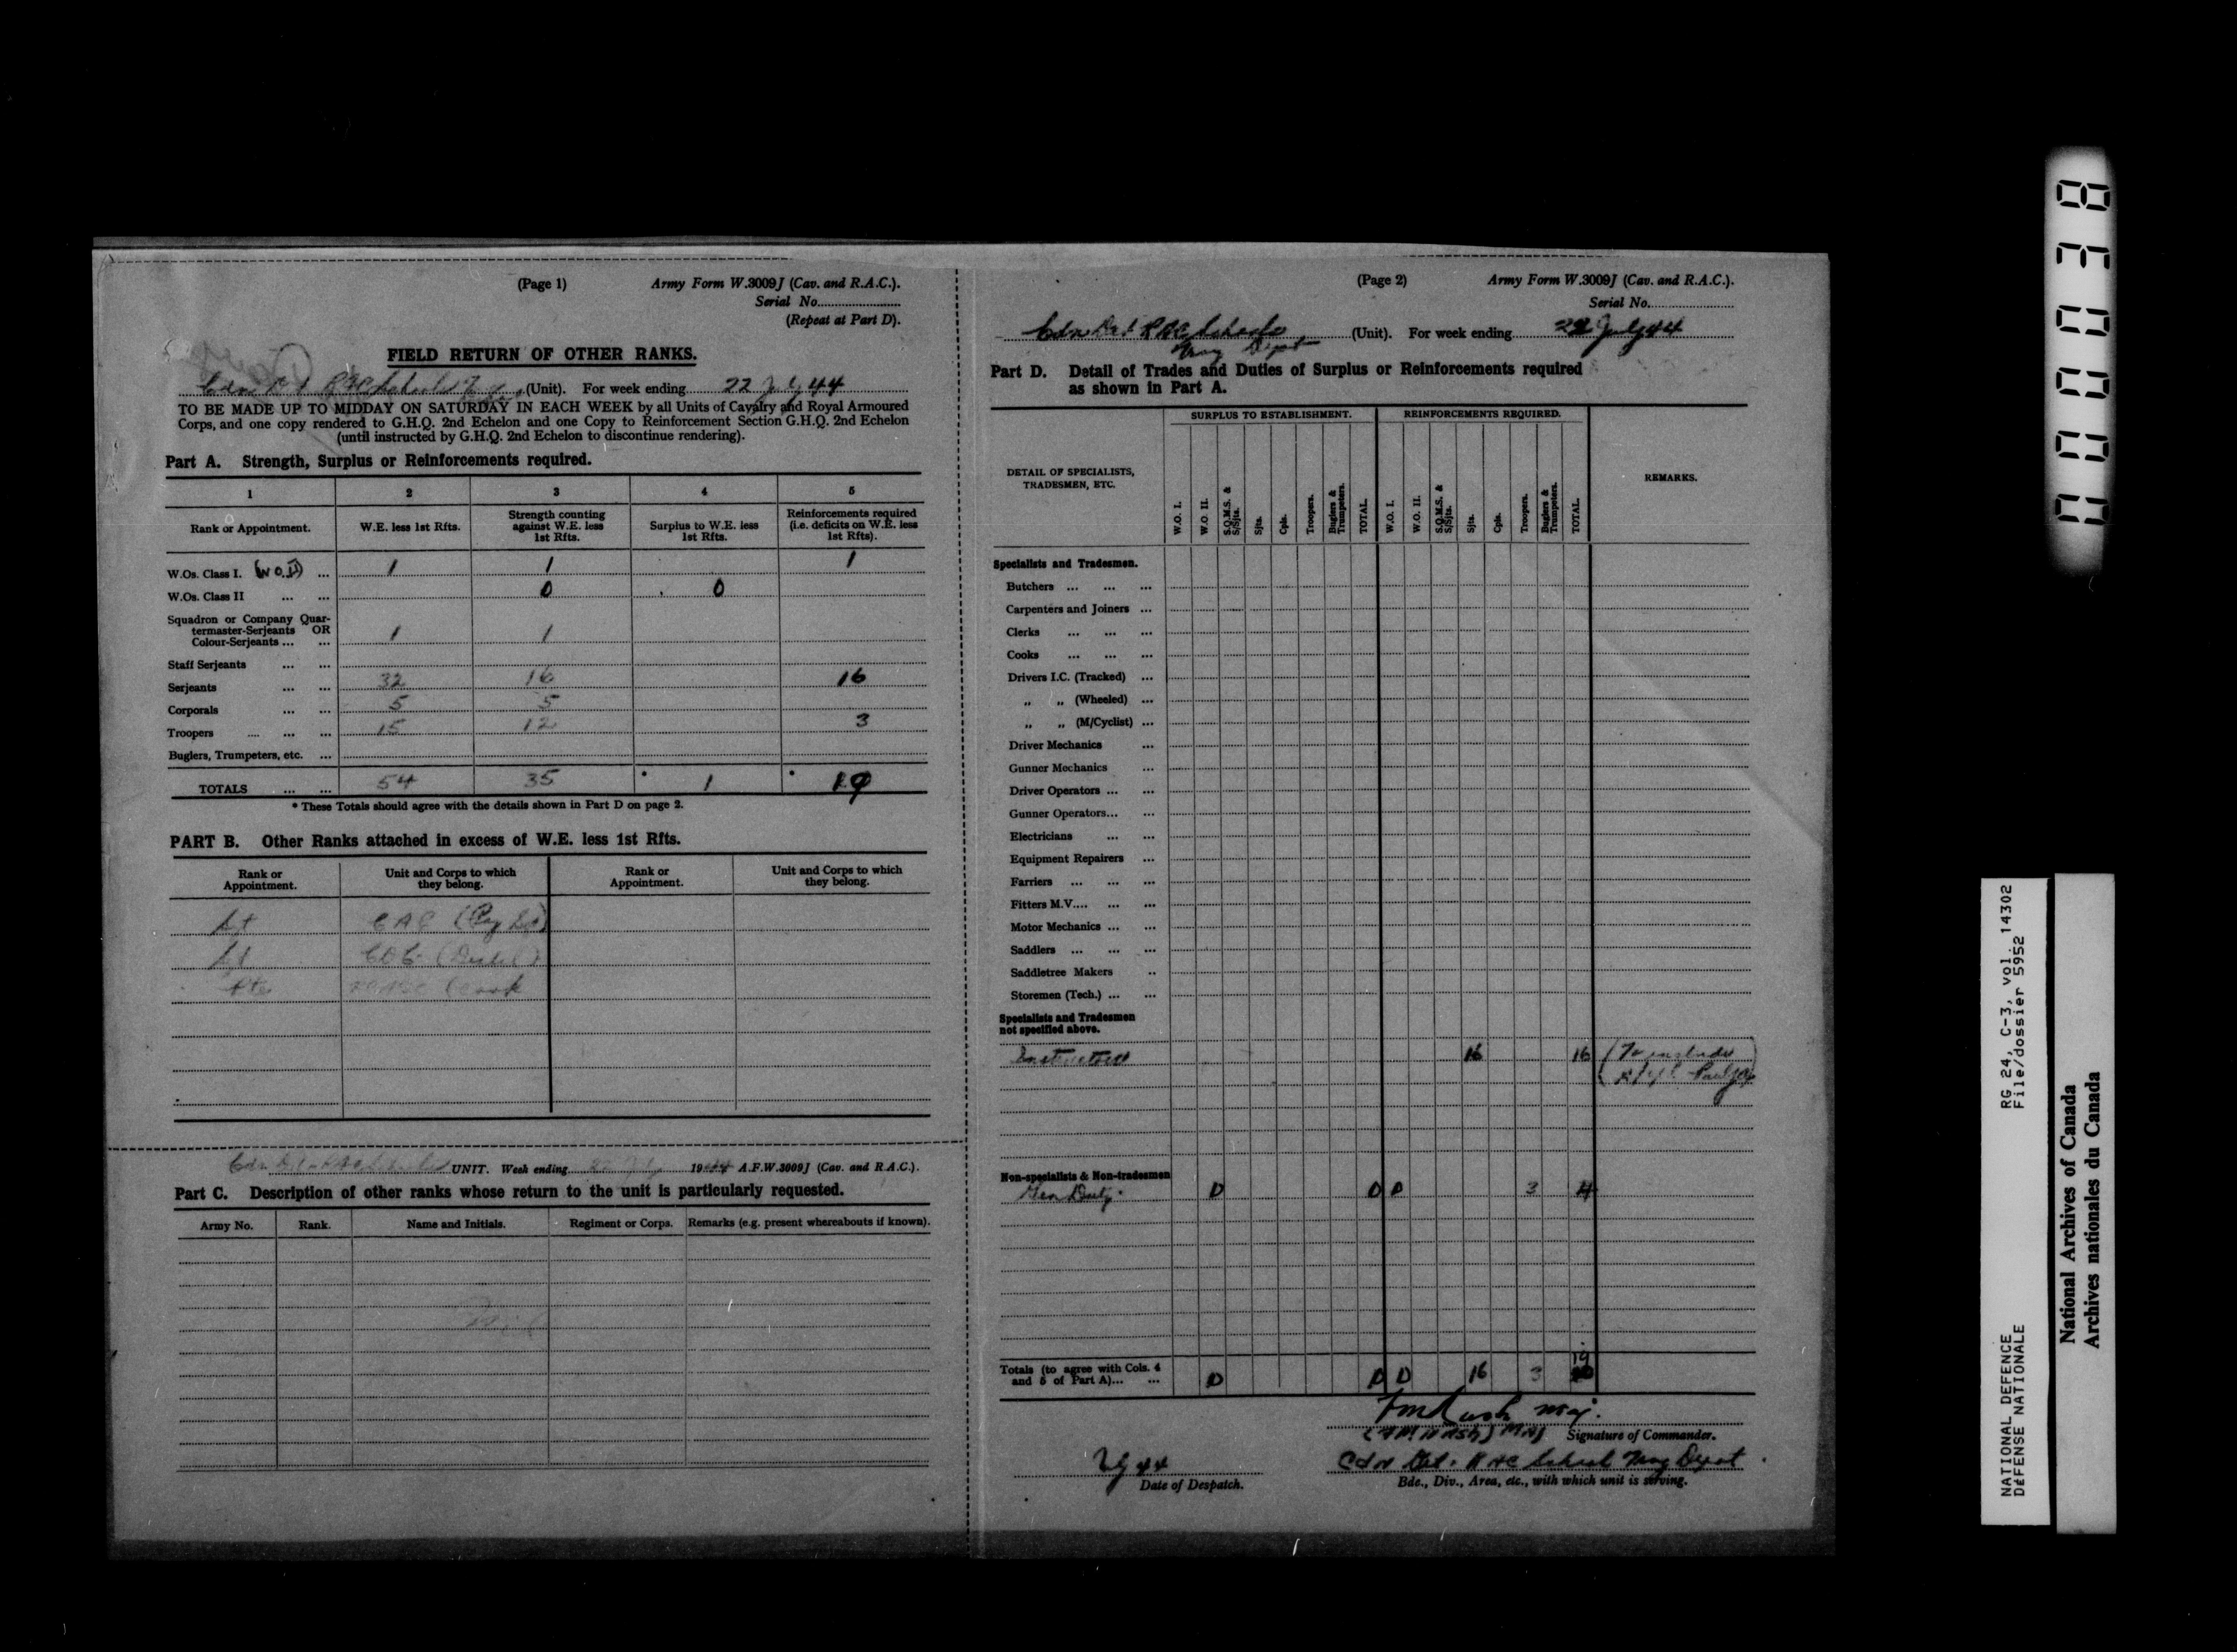 (Page 1) Army Form W.3009J (Cav. and R.A.C.).
Serial No.
(Repeat at Part D).
FIELD RETURN OF OTHER RANKS.
Cdn Det RAC School (Unit). For week ending 22 July 44
TO BE MADE UP TO MIDDAY ON SATURDAY IN EACH WEEK by all Units of Cavalry and Royal Armoured
Corps, and one copy rendered to G.H.Q. 2nd Echelon and one Copy to Reinforcement Section G.H.Q. 2nd Echelon
(until instructed by G.H.Q. 2nd Echelon to discontinue rendering).
Part A. Strength, Surplus or Reinforcements required.
1 2 3 4 5
Rank or Appointment. W.E. less 1st Rfts. Strength counting against W.E. less 1st Rfts. Surplus to W.E. less 1st Rfts. Reinforcements required (i.e. deficits on W.E. less 1st Rfts).
W.Os. Class I. (WO.II) ... 1 1 1
W.Os. Class II ... ... 0 0
Squadron or Company Quar-
termaster-Serjeants OR
Colour-Serjeants ... ... 1 1
Staff Serjeants ... ...
Serjeants ... ... 32 16 16
Corporals ... ... 5 5
Troopers ... ... ... 15 12 3
Buglers, Trumpeters, etc. ...
TOTALS ... ... 54 35 * 1 * 19
* These Totals should agree with the details shown in Part D on page 2.
PART B. Other Ranks attached in excess of W.E. less 1st Rfts.
Rank or Appointment. Unit and Corps to which they belong. Rank or Appointment. Unit and Corps to which they belong.
Sgt
CDC
Pte Cook
Cdn UNIT. Week ending 1944 A.F.W.3009J (Cav. and R.A.C.).
Part C. Description of other ranks whose return to the unit is particularly requested.
Army No. Rank. Name and Initials. Regiment or Corps. Remarks (e.g. present whereabouts if known).
(Page 2) Army Form W.3009J (Cav. and R.A.C.).
Serial No.
Cdn Det RAC Schools (Unit). For week ending 22 July 44
Trng Dept
Part D. Detail of Trades and Duties of Surplus or Reinforcements required
as shown in Part A.
SURPLUS TO ESTABLISHMENT. REINFORCEMENTS REQUIRED.
DETAIL OF SPECIALISTS, TRADESMEN, ETC. W.O. I. W.O II. S.Q.M.S. & S/Sjts. Sjts. Cpls. Troopers. Buglers & Trumpeters. TOTAL. W.O. I. W.O. II. S.Q.M.S. & S/Sjts. Sjts. Cpls. Troopers. Buglers & Trumpeters. TOTAL. REMARKS.
Specialists and Tradesmen.
Butchers ... ... ...
Carpenters and Joiners ...
Clerks ... ... ...
Cooks ... ... ...
Drivers I.C. (Tracked) ...
„ „ (Wheeled) ...
„ „ (M/Cyclist) ...
Driver Mechanics ...
Gunner Mechanics ...
Driver Operators ... ...
Gunner Operators... ...
Electricians ... ...
Equipment Repairers ...
Farriers ... ... ...
Fitters M.V.... ... ...
Motor Mechanics ... ...
Saddlers ... ... ...
Saddletree Makers ..
Storemen (Tech.) ... ...
Specialists and Tradesmen
not specified above.
Instructors 16 16 (To include
Non-specialists & Non-tradesmen
Gen Duty 0 0 0 3 4
Totals (to agree with Cols. 4
and 5 of Part A)... ... 0 0 0 16 3 19
Maj.
(F M NASH) MAJ Signature of Commander.
Cdn Det. RAC School Trng Depot
Bde., Div., Area, etc., with which unit is serving.
44
Date of Despatch.
000038
RG 24, C-3, vol. 14302
File/dossier 5952
NATIONAL DEFENCE
DÉFENSE NATIONALE
National Archives of Canada
Archives nationales du Canada